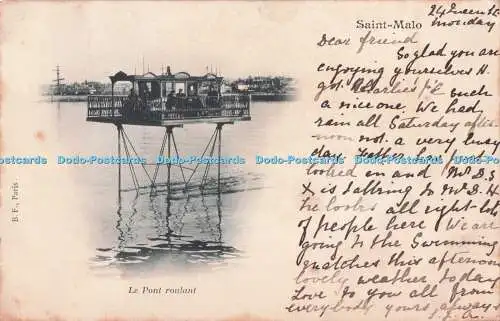 Saint-Malo
24 Queen St
Monday
Dear friend
So glad you are
enjoying yourselves H
got Charlies P.C. such
a nice one. We had
rain all Saturday after
noon not a very busy
day
looked in and Mr D.S
is talking to Mr D.H
he looks all right lot
of people here We are
going to the Swimming
matches this afternoon
lovely weather today
Love to you all from
everybody yours always
Dodo-Postcards Dodo-Postcards Dodo-Postcards Dodo-Postcards Dodo-Postcards
B. F., Paris
Le Pont roulant